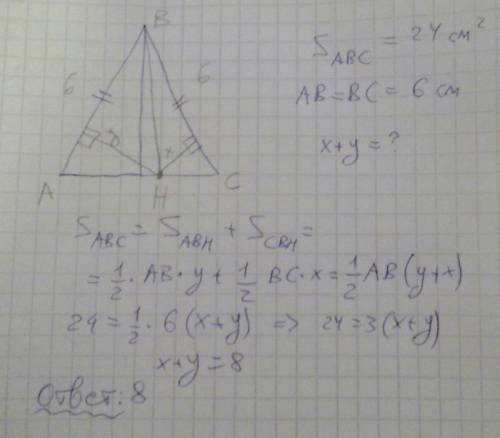 B
6
6
y
x
A
H
C
S_ABC = 24 см²
AB=BC= 6 см
x+y = ?
S_ABC = S_ABH + S_CBH =
= 1/2 · AB · y + 1/2 BC · x = 1/2 AB (y+x)
24 = 1/2 · 6 (x+y) => 24 = 3 (x+y)
x+y = 8
Ответ: 8